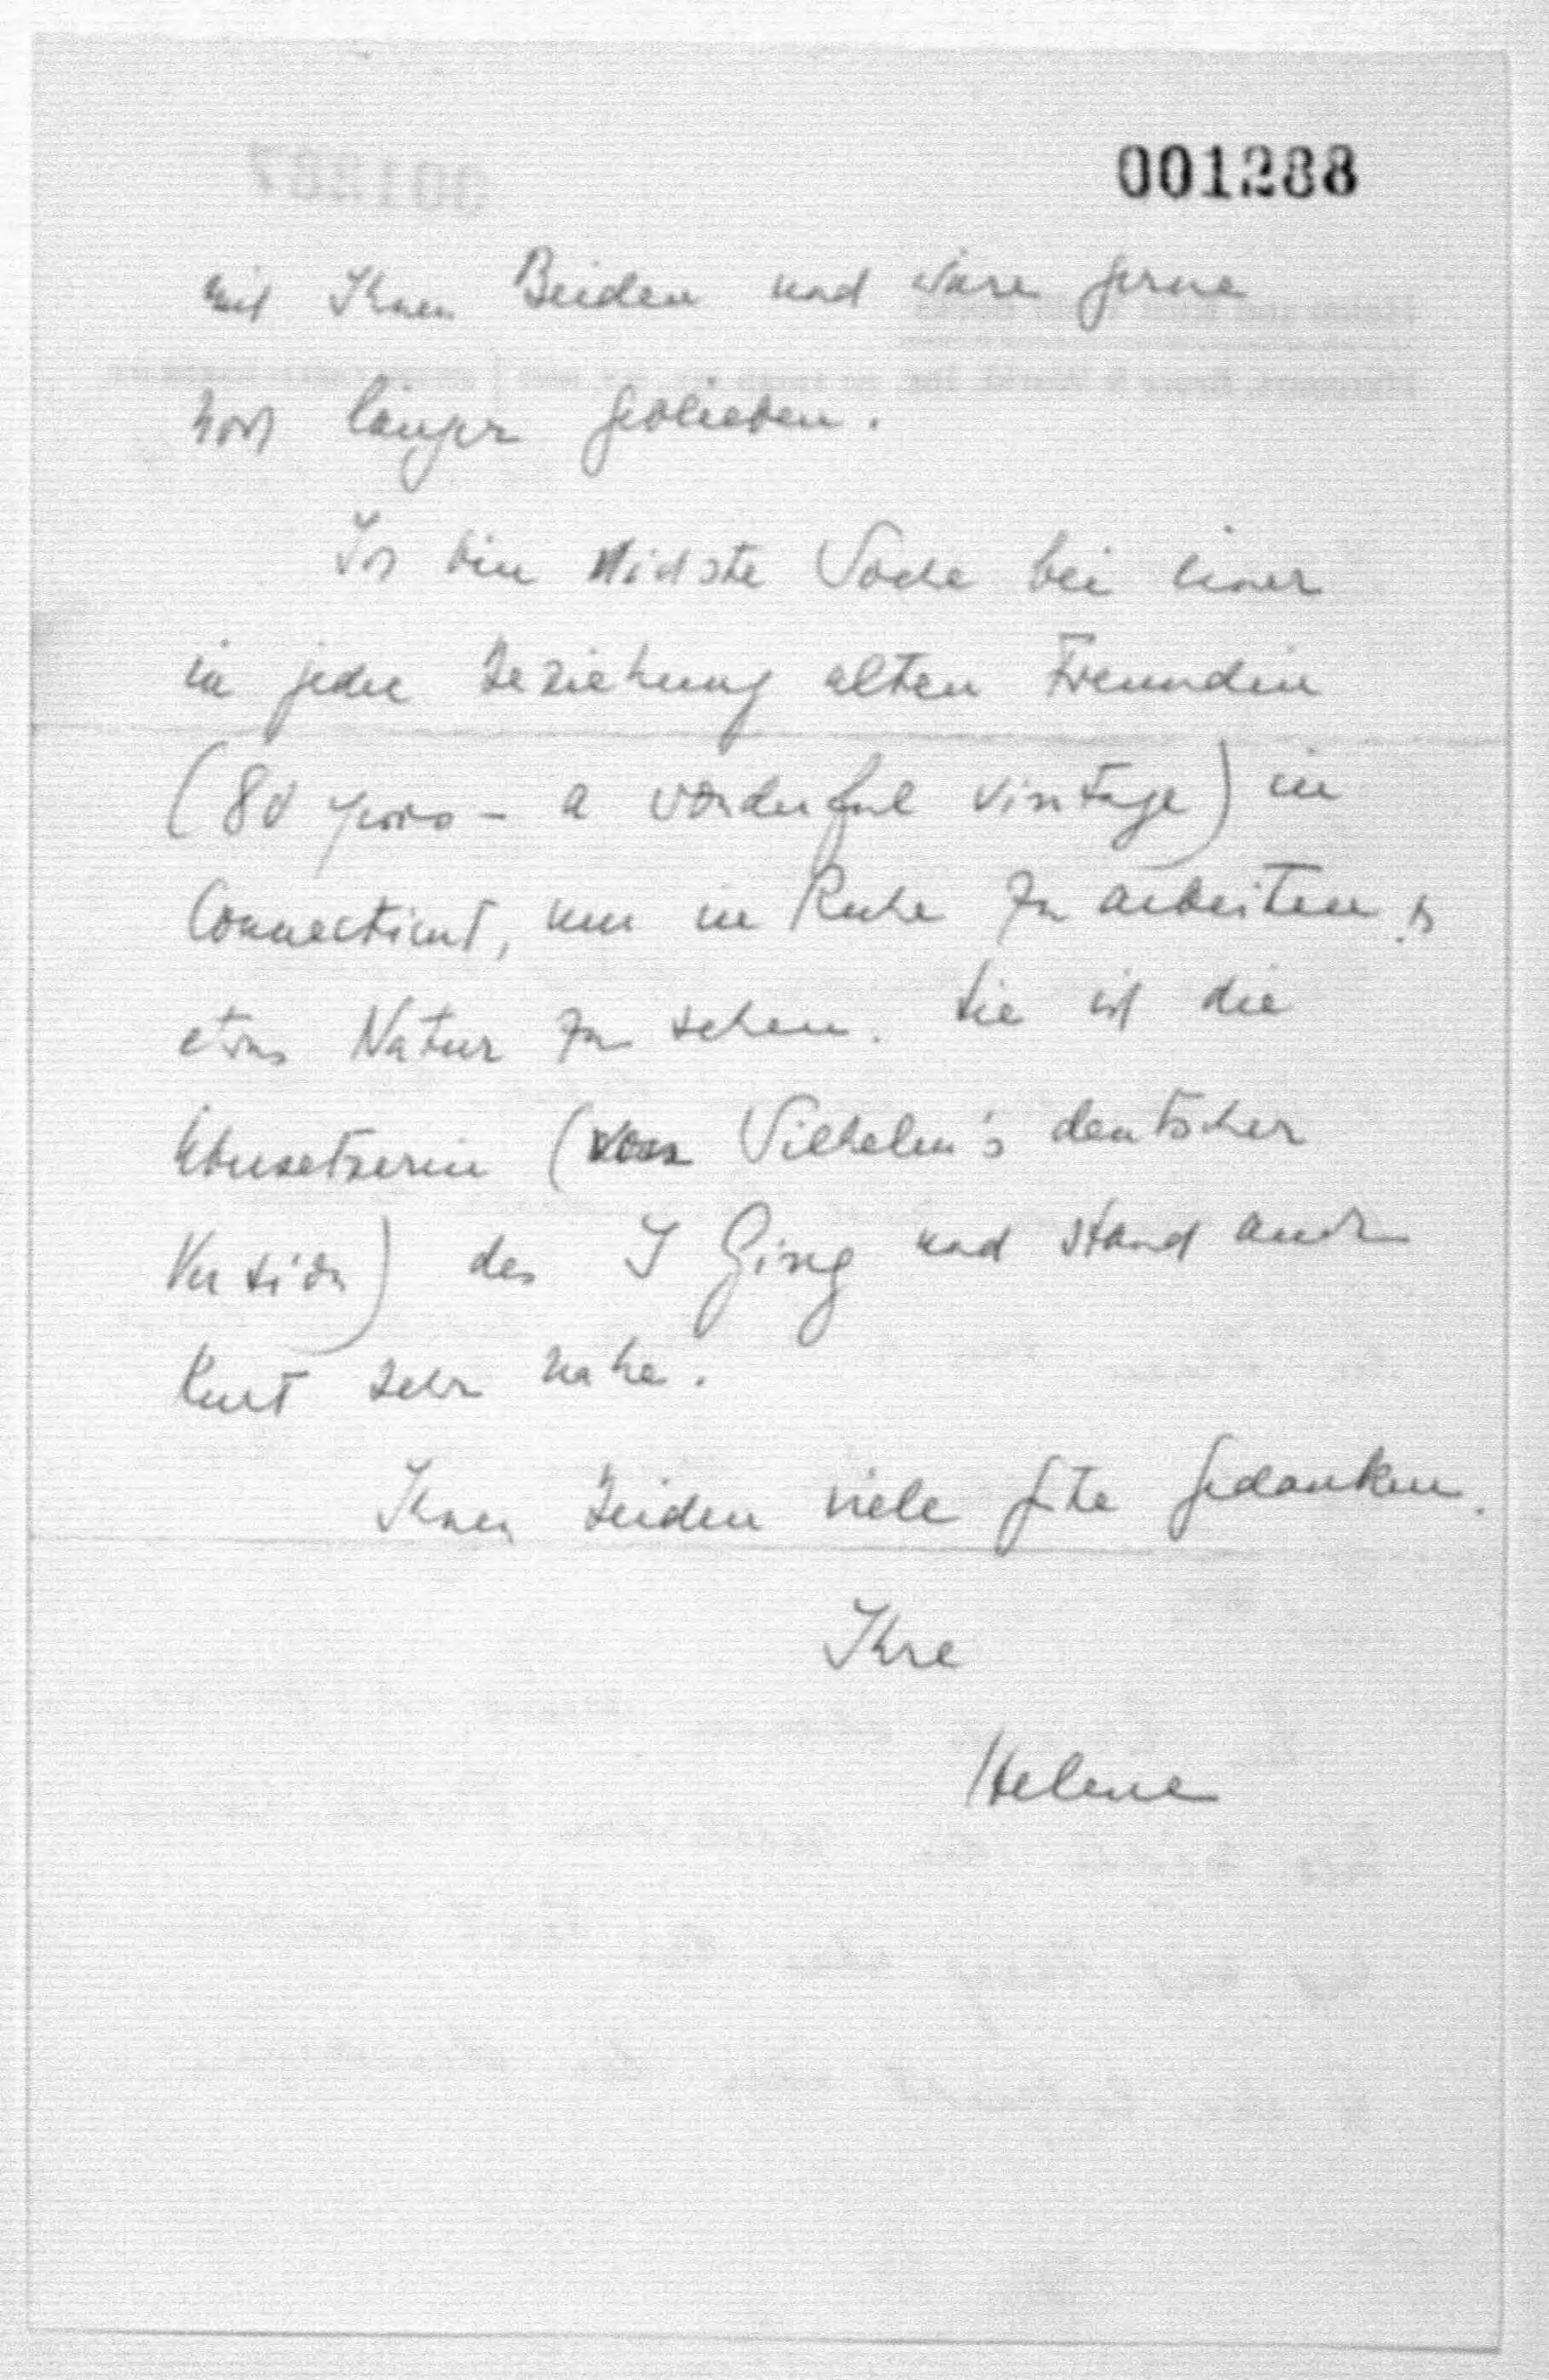 001288
mit Ihnen Beiden und wäre gerne
noch länger geblieben.
Ich bin nächste Woche bei einer
in jeder Beziehung alten Freundin
(80 years - a wonderful vintage) in
Connecticut, um in Ruhe zu arbeiten &
etwas Natur zu sehen. Sie ist die
Übersetzerin (von Wilhelm's deutscher
Version) des I Ging und stand auch
Kurt sehr nahe.
Ihnen Beiden viele gute Gedanken.
Ihre
Helene